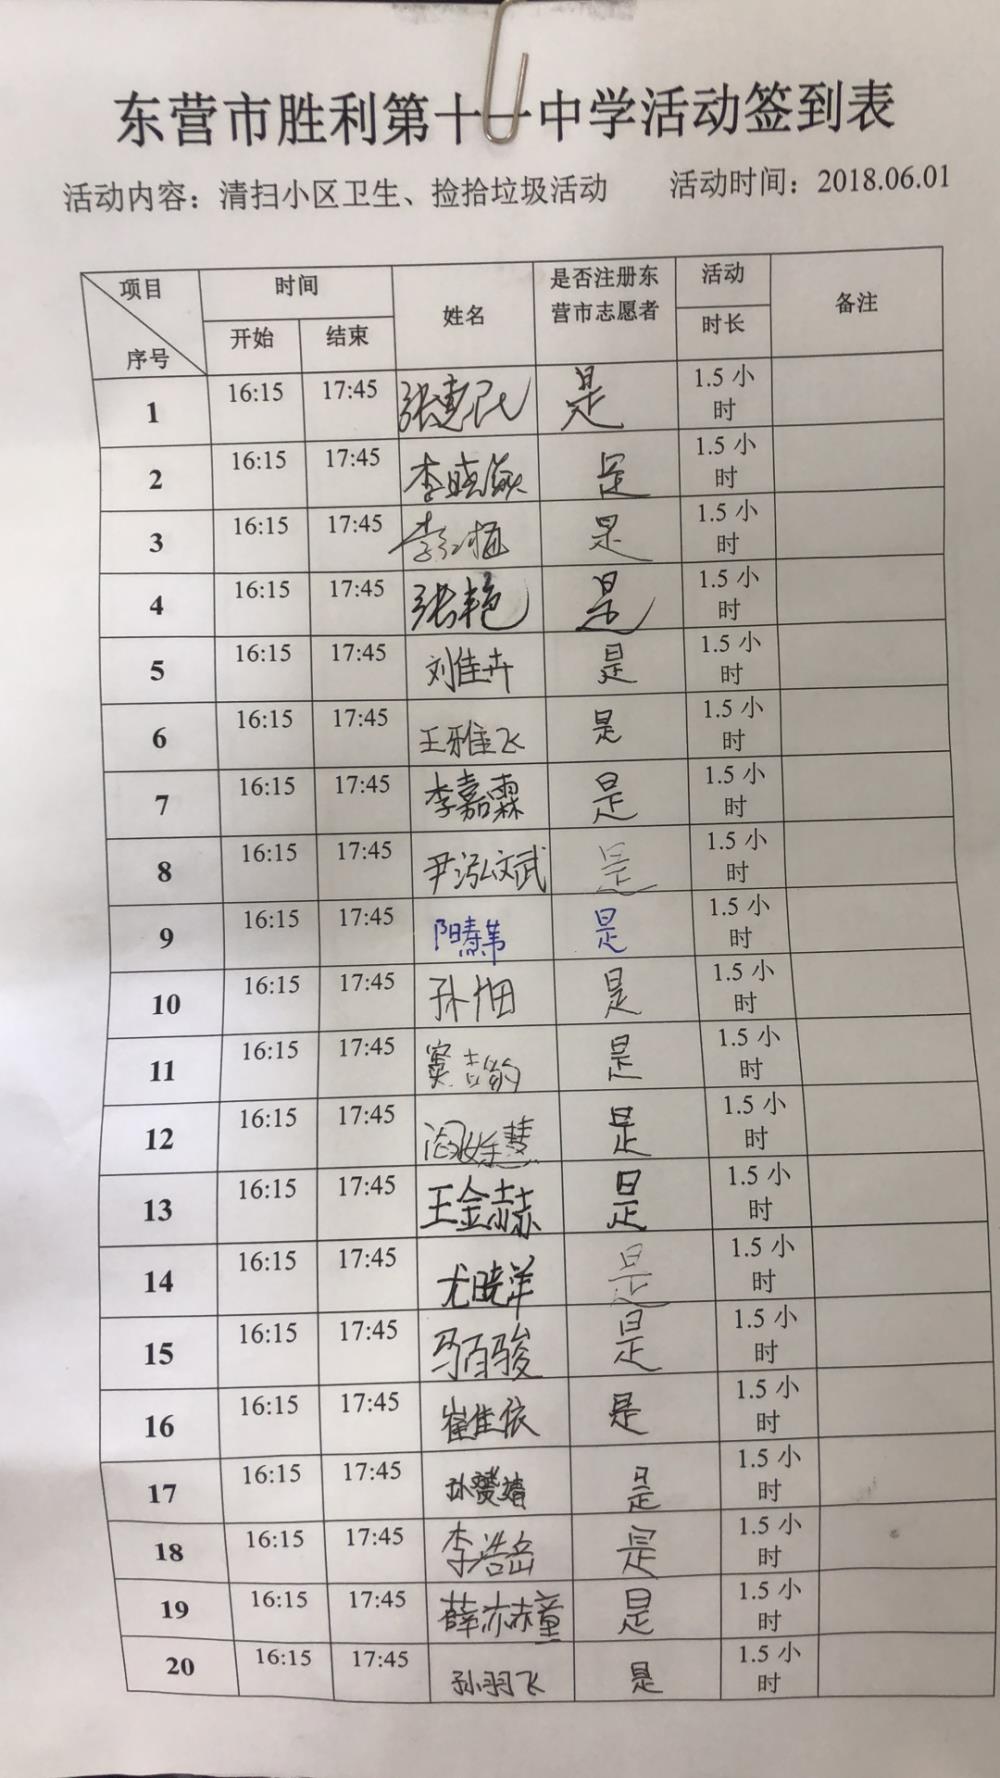 东营市胜利第十一中学活动签到表
活动内容：清扫小区卫生、捡拾垃圾活动 活动时间：2018.06.01
项目 序号 时间 姓名 是否注册东营市志愿者 活动 备注
开始 结束 时长
1 16:15 17:45 是 1.5小时
2 16:15 17:45 李晓 是 1.5小时
3 16:15 17:45 李红梅 是 1.5小时
4 16:15 17:45 张艳 是 1.5小时
5 16:15 17:45 刘佳卉 是 1.5小时
6 16:15 17:45 王雅飞 是 1.5小时
7 16:15 17:45 李嘉霖 是 1.5小时
8 16:15 17:45 尹泓文武 是 1.5小时
9 16:15 17:45 是 1.5小时
10 16:15 17:45 孙佃 是 1.5小时
11 16:15 17:45 窦 是 1.5小时
12 16:15 17:45 是 1.5小时
13 16:15 17:45 王金赫 是 1.5小时
14 16:15 17:45 尤晓洋 是 1.5小时
15 16:15 17:45 马百骏 是 1.5小时
16 16:15 17:45 崔佳依 是 1.5小时
17 16:15 17:45 孙 是 1.5小时
18 16:15 17:45 李浩岳 是 1.5小时
19 16:15 17:45 薛亦赫童 是 1.5小时
20 16:15 17:45 孙羽飞 是 1.5小时